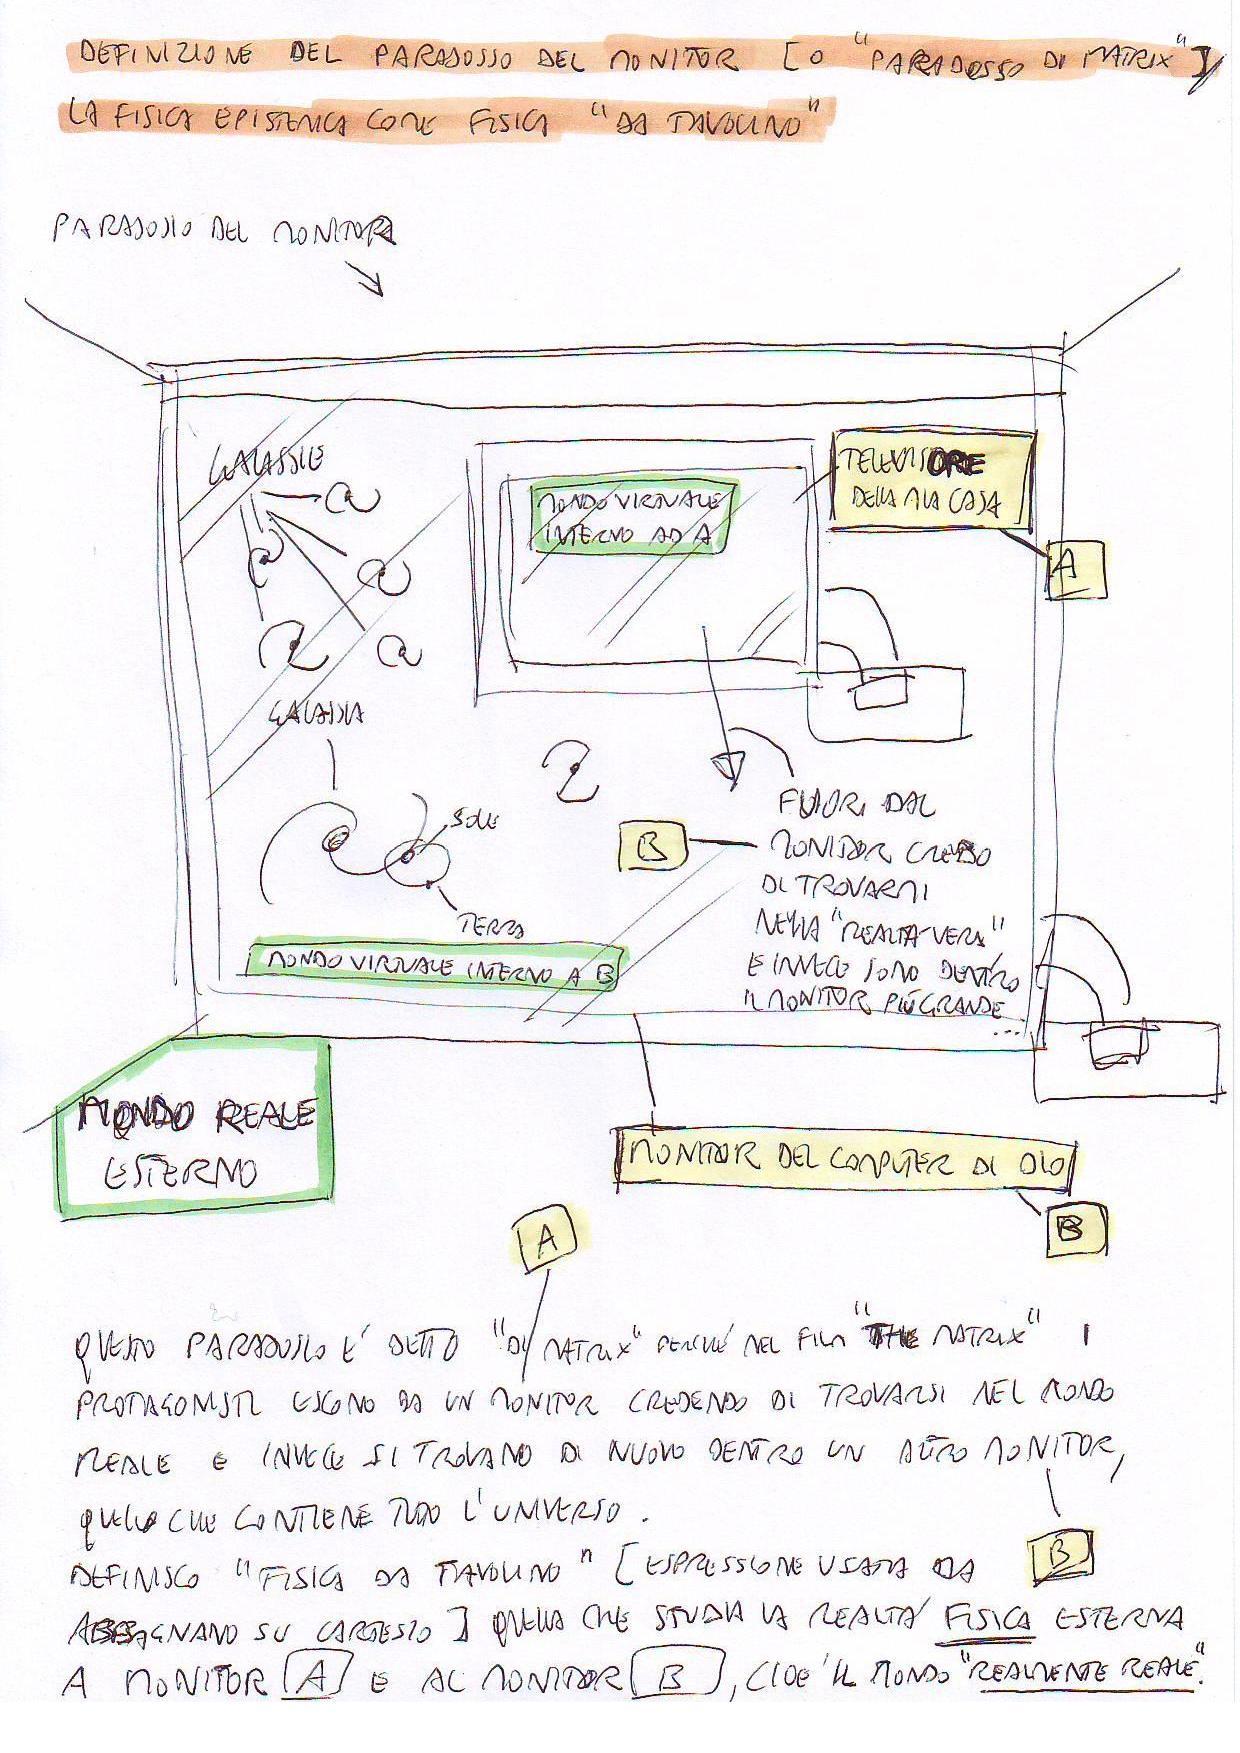 DEFINIZIONE DEL PARADOSSO DEL MONITOR [O "PARADOSSO DI MATRIX"]
LA FISICA EPISTEMICA COME FISICA "DA TAVOLINO"
PARADOSSO DEL MONITOR
GALASSIE
MONDO VIRTUALE
INTERNO AD A
TELEVISORE
DELLA MIA CASA
A
GALASSIA
SOLE
TERRA
B
FUORI DAL
MONITOR CREDO
DI TROVARMI
NELLA "REALTÀ VERA"
E INVECE SONO DENTRO
IL MONITOR PIÙ GRANDE
...
MONDO VIRTUALE INTERNO A B
MONDO REALE
ESTERNO
MONITOR DEL COMPUTER DI DIO
B
A
QUESTO PARADOSSO E' DETTO "DI MATRIX" PERCHÉ NEL FILM "THE MATRIX" I
PROTAGONISTI ESCONO DA UN MONITOR CREDENDO DI TROVARSI NEL MONDO
REALE E INVECE SI TROVANO DI NUOVO DENTRO UN ALTRO MONITOR,
QUELLO CHE CONTIENE TUTTO L'UNIVERSO.
B
DEFINISCO "FISICA DA TAVOLINO" [ESPRESSIONE USATA DA
ABBAGNANO SU CARTESIO] QUELLA CHE STUDIA LA REALTÀ FISICA ESTERNA
A MONITOR A E AL MONITOR B, CIOE' IL MONDO "REALMENTE REALE".